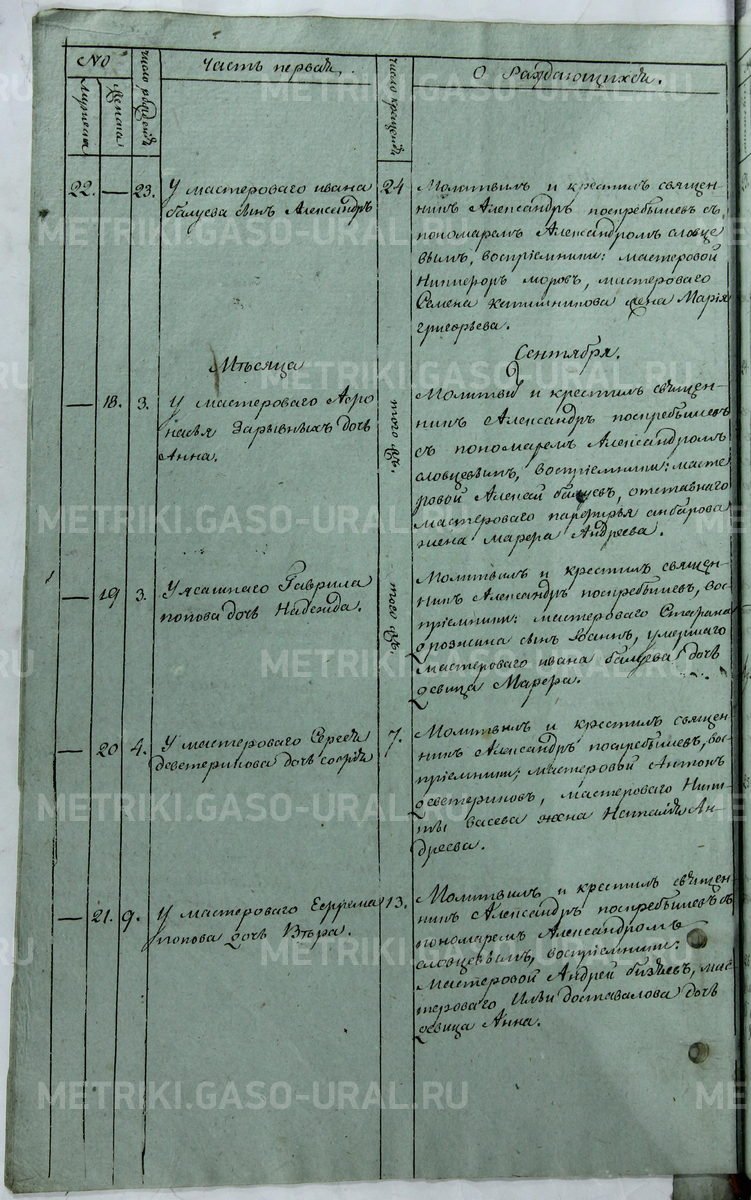 №
мужеска
женска
число рожденія
Часть первая.
число крещенія
О Раждающихся.
22. — 23.
У мастероваго ивана
балуева сынъ Александръ
24
Молитвилъ и крестилъ священ-
никъ Александръ поспребышевъ съ
пономаремъ Александромъ словце
вымъ, воспріемники: мастеровой
Никифоръ моровъ, мастероваго
Семена катишникова жена Марія
григорьева.
Мѣсяца
Сентября.
— 18. 3.
У мастероваго Афо
насья Зарывныхъ дочь
Анна.
того же.
Молитвилъ и крестилъ священ-
никъ Александръ поспребышевъ
съ пономаремъ Александромъ
словцевымъ, воспріемники: масте
ровой Алексей балуевъ, отставнаго
мастероваго парфенья амбарова
жена Марфа Андреева.
— 19 3.
У ясашнаго Гаврила
попова дочь Надежда.
того же.
Молитвилъ и крестилъ священ-
никъ Александръ поспребышевъ, вос-
пріемники: мастероваго Стафана
дрозжина сынъ Иванъ, умершаго
мастероваго ивана балуева дочь
девица Марфа.
— 20 4.
У мастероваго Сергея
деветерикова дочь софья
7.
Молитвилъ и крестилъ священ-
никъ Александръ поспребышевъ, вос-
пріемники: мастеровой Антонъ
деветериковъ, мастероваго Ники-
ты васева жена Наталья Ан-
дреева.
— 21. 9.
У мастероваго Ефрема
попова дочь Вѣра.
13.
Молитвилъ и крестилъ священ-
никъ Александръ поспребышевъ съ
пономаремъ Александромъ
словцевымъ, воспріемники:
Мастеровой Андрей бизяевъ, мас-
тероваго Ильи доставалова дочь
девица Анна.
METRIKI.GASO-URAL.RU